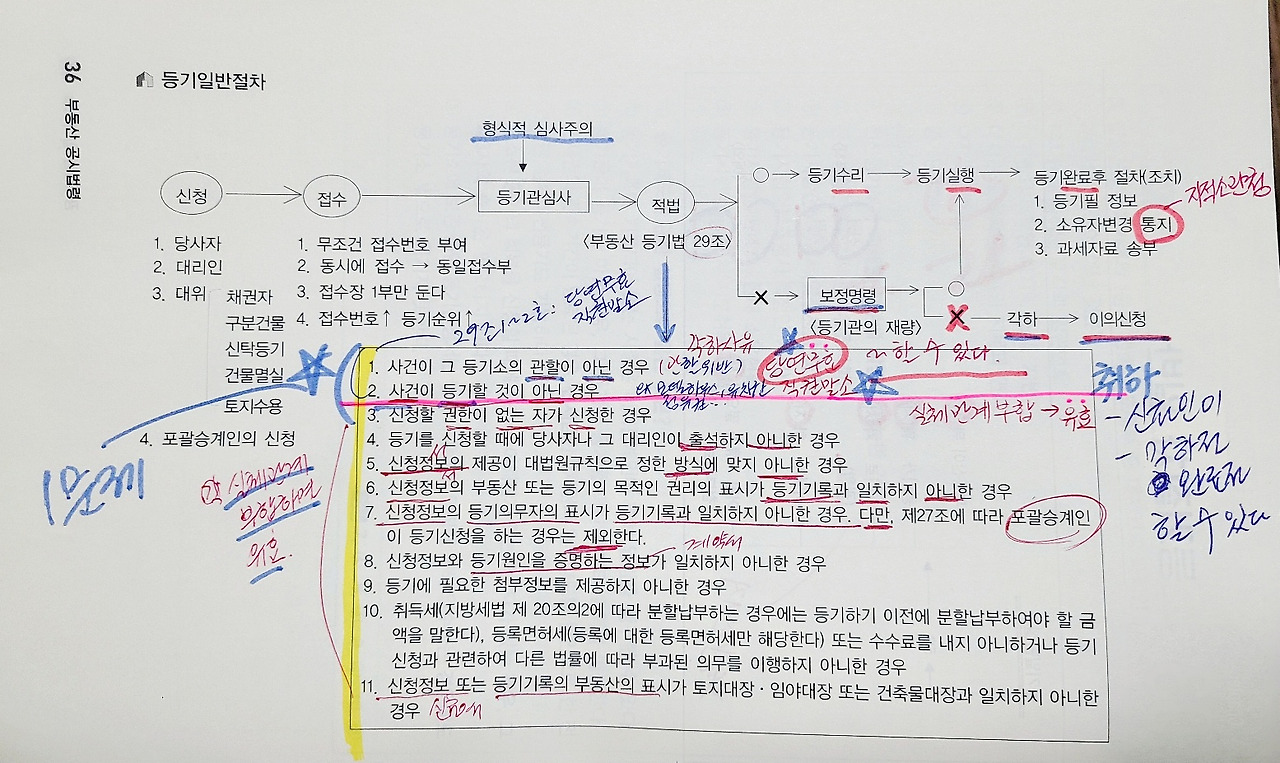 36 부동산 공시법령
등기일반절차
형식적 심사주의
신청
접수
등기관심사
적법
〈부동산 등기법 29조〉
등기수리
등기실행
등기완료후 절차(조치)
1. 등기필 정보
2. 소유자변경 통지
3. 과세자료 송부
지적소관청
1. 당사자
2. 대리인
3. 대위
채권자
구분건물
신탁등기
건물멸실
토지수용
4. 포괄승계인의 신청
1. 무조건 접수번호 부여
2. 동시에 접수 → 동일접수부
3. 접수장 1부만 둔다
4. 접수번호↑ 등기순위↑
보정명령
〈등기관의 재량〉
각하
이의신청
29조1~2호: 당연무효
직권말소
각하사유
1. 사건이 그 등기소의 관할이 아닌 경우 (관할위반)
당연무효
~할 수 있다.
2. 사건이 등기할 것이 아닌 경우
직권말소
실체관계부합 → 유효
3. 신청할 권한이 없는 자가 신청한 경우
4. 등기를 신청할 때에 당사자나 그 대리인이 출석하지 아니한 경우
5. 신청정보의 제공이 대법원규칙으로 정한 방식에 맞지 아니한 경우
6. 신청정보의 부동산 또는 등기의 목적인 권리의 표시가 등기기록과 일치하지 아니한 경우
7. 신청정보의 등기의무자의 표시가 등기기록과 일치하지 아니한 경우. 다만, 제27조에 따라 포괄승계인
이 등기신청을 하는 경우는 제외한다.
8. 신청정보와 등기원인을 증명하는 정보가 일치하지 아니한 경우
9. 등기에 필요한 첨부정보를 제공하지 아니한 경우
10. 취득세(지방세법 제 20조의2에 따라 분할납부하는 경우에는 등기하기 이전에 분할납부하여야 할 금
액을 말한다), 등록면허세(등록에 대한 등록면허세만 해당한다) 또는 수수료를 내지 아니하거나 등기
신청과 관련하여 다른 법률에 따라 부과된 의무를 이행하지 아니한 경우
11. 신청정보 또는 등기기록의 부동산의 표시가 토지대장·임야대장 또는 건축물대장과 일치하지 아니한
경우
1문제
실체관계
부합하면
유효.
취하
- 신청인이
- 각하전
완료전
할 수 있다